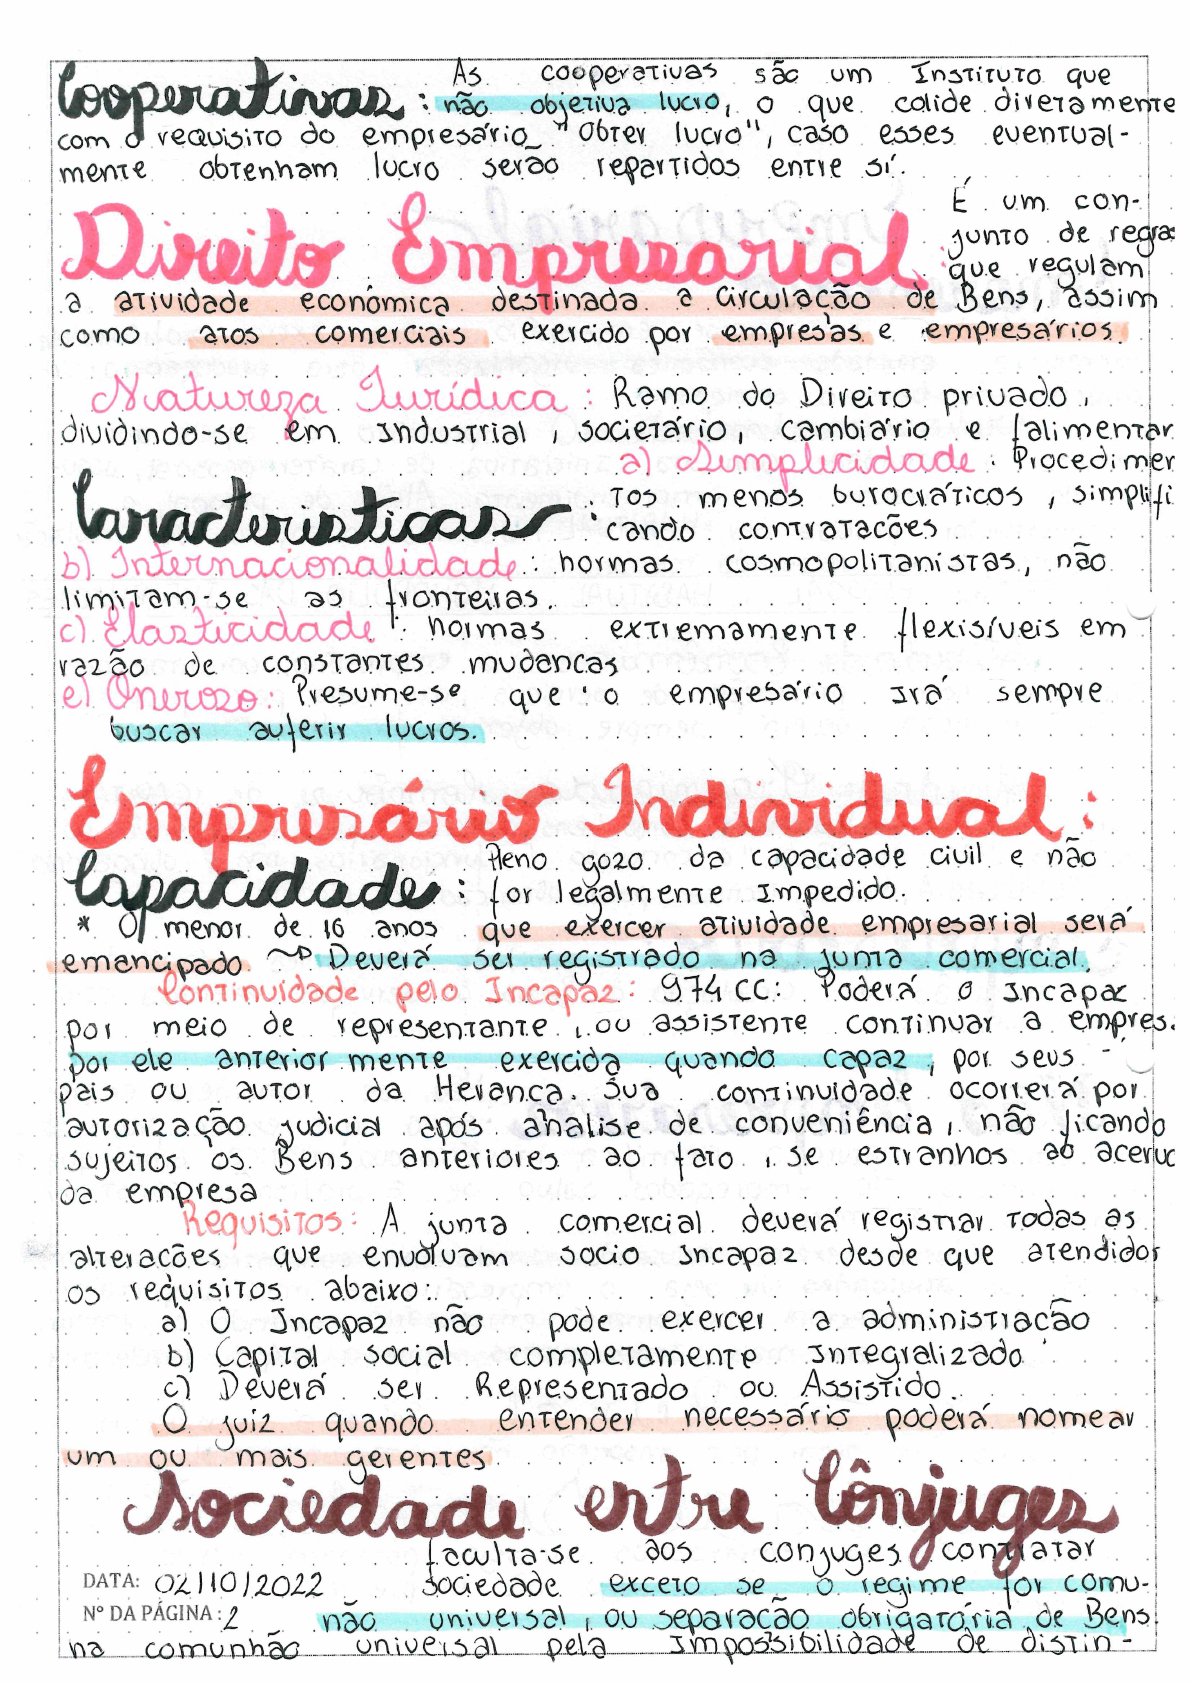 Cooperativas: As cooperativas são um Instituto que
não objetiva lucro, o que colide diretamente
com o requisito do empresário "obter lucro", caso esses eventual-
mente obtenham lucro serão repartidos entre sí.
Direito Empresarial: É um con-
junto de regras
que regulam
a atividade econômica destinada a Circulação de Bens, assim
como atos comerciais exercido por empresas e empresários.
Natureza Jurídica: Ramo do Direito privado,
dividindo-se em Industrial, societário, cambiário e falimentar
Caracteristicas: a) Simplicidade: Procedimen
tos menos burocráticos, simplifi
cando contratacões
b) Internacionalidade: normas cosmopolitanistas, não
limitam-se as fronteiras.
c) Elasticidade: normas extremamente flexisíveis em
razão de constantes mudancas
e) Oneroso: Presume-se que o empresário irá sempre
buscar auferir lucros.
Empresário Individual:
Capacidade: Pleno gozo da capacidade civil e não
for legalmente Impedido.
* O menor de 16 anos que exercer atividade empresarial será
emancipado ~> Deverá ser registrado na junta comercial.
Continuidade pelo Incapaz: 974 CC: Poderá o Incapaz
por meio de representante, ou assistente continuar a empres.
por ele anteriormente exercida quando capaz, por seus
pais ou autor da Heranca. Sua continuidade ocorrerá por
autorização judicial após análise de conveniência, não ficando
sujeitos os Bens anteriores ao fato, se estranhos ao acervo
da empresa
Requisitos: A junta comercial deverá registrar todas as
alteracões que envolvam socio Incapaz desde que atendidos
os requisitos abaixo:
a) O Incapaz não pode exercer a administracão
b) Capital social completamente Integralizado
c) Deverá ser Representado ou Assistido.
O juiz quando entender necessário poderá nomear
um ou mais gerentes
Sociedade entre Cônjuges
faculta-se aos conjuges contratar
DATA: 02/10/2022 sociedade exceto se o regime for comu-
Nº DA PÁGINA: 2 não universal, ou separação obrigatória de Bens.
na comunhão universal pela Impossibilidade de distin-